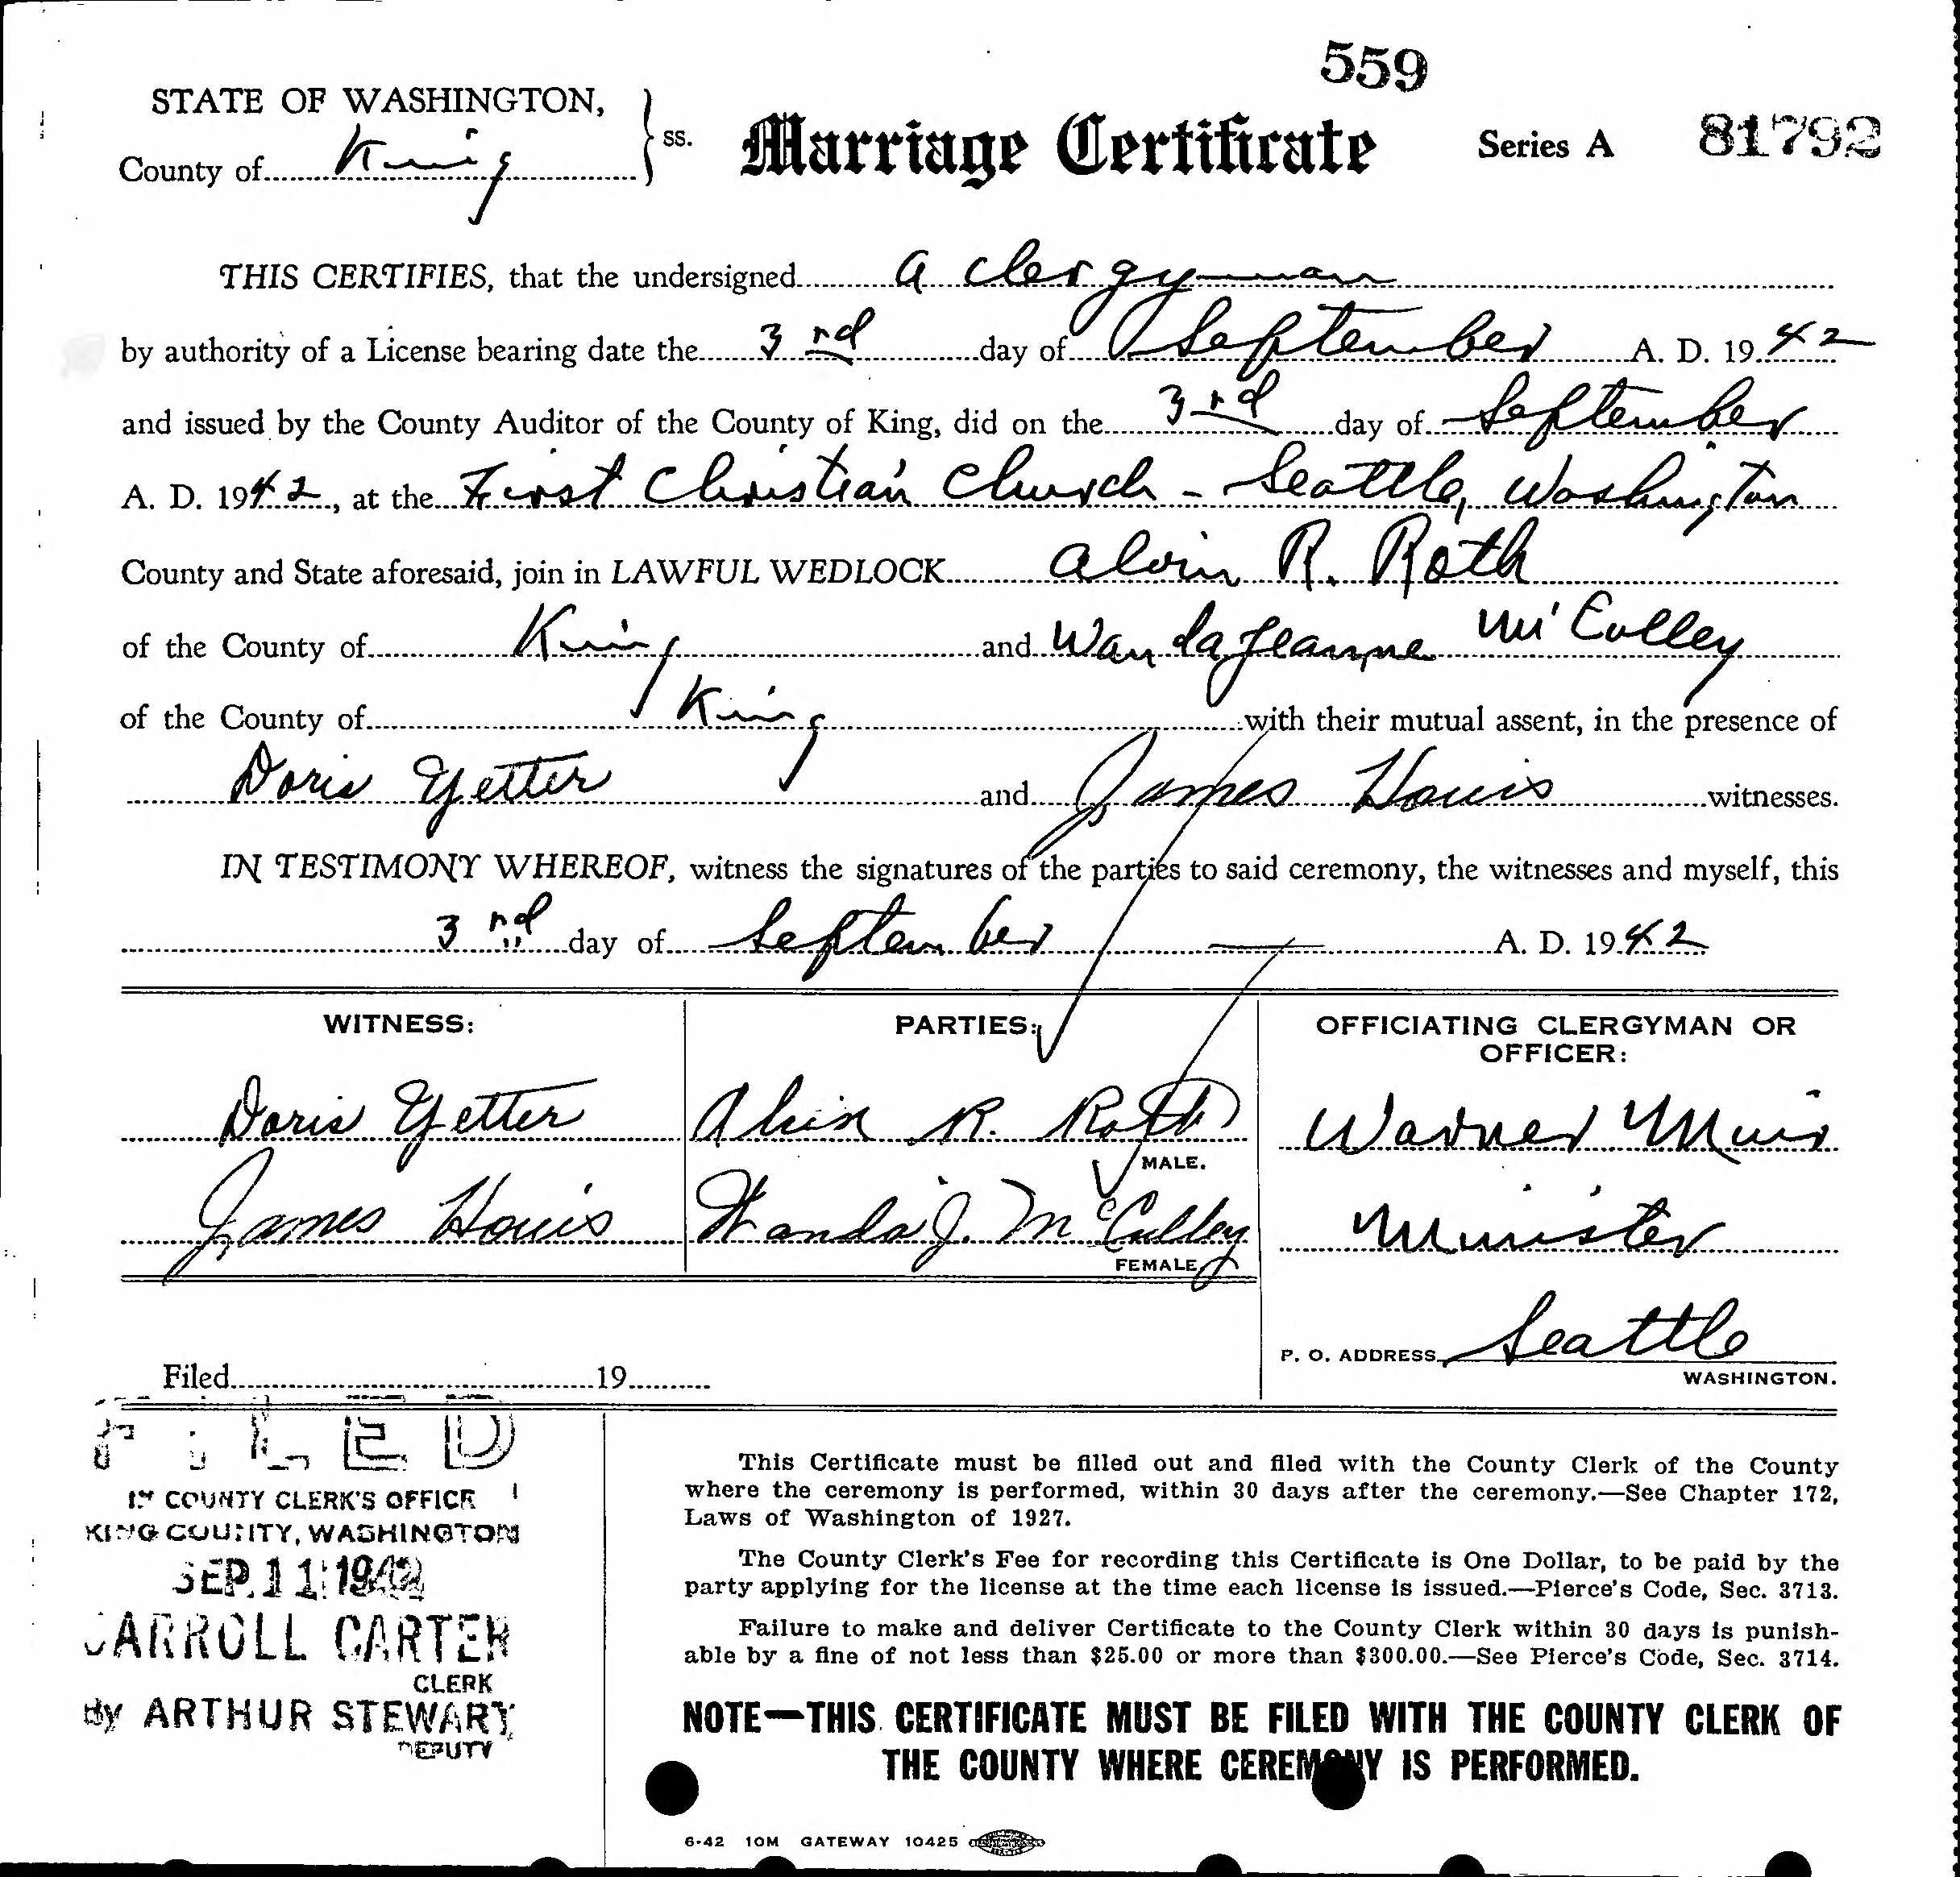 559
STATE OF WASHINGTON, } ss. Marriage Certificate Series A 81792
County of King
THIS CERTIFIES, that the undersigned a clergyman
by authority of a License bearing date the 3rd day of September A. D. 1942
and issued by the County Auditor of the County of King, did on the 3rd day of September
A. D. 1942, at the First Christian Church - Seattle, Washington
County and State aforesaid, join in LAWFUL WEDLOCK Alvin R. Roth
of the County of King and Wanda Jeanne McCulley
of the County of King with their mutual assent, in the presence of
Doris Yetter and James Houis witnesses.
IN TESTIMONY WHEREOF, witness the signatures of the parties to said ceremony, the witnesses and myself, this
3rd day of September A. D. 1942
WITNESS: PARTIES: OFFICIATING CLERGYMAN OR
OFFICER:
Doris Yetter Alvin R. Roth Warner Muir
MALE.
James Houis Wanda J. McCulley Minister
FEMALE
P. O. ADDRESS Seattle
WASHINGTON.
Filed 19
FILED
IN COUNTY CLERK'S OFFICE
KING COUNTY, WASHINGTON
SEP 11 1942
CARROLL CARTER
CLERK
By ARTHUR STEWART
DEPUTY
This Certificate must be filled out and filed with the County Clerk of the County
where the ceremony is performed, within 30 days after the ceremony.—See Chapter 172,
Laws of Washington of 1927.
The County Clerk's Fee for recording this Certificate is One Dollar, to be paid by the
party applying for the license at the time each license is issued.—Pierce's Code, Sec. 3713.
Failure to make and deliver Certificate to the County Clerk within 30 days is punish-
able by a fine of not less than $25.00 or more than $300.00.—See Pierce's Code, Sec. 3714.
NOTE—THIS CERTIFICATE MUST BE FILED WITH THE COUNTY CLERK OF
THE COUNTY WHERE CEREMONY IS PERFORMED.
6-42 10M GATEWAY 10425